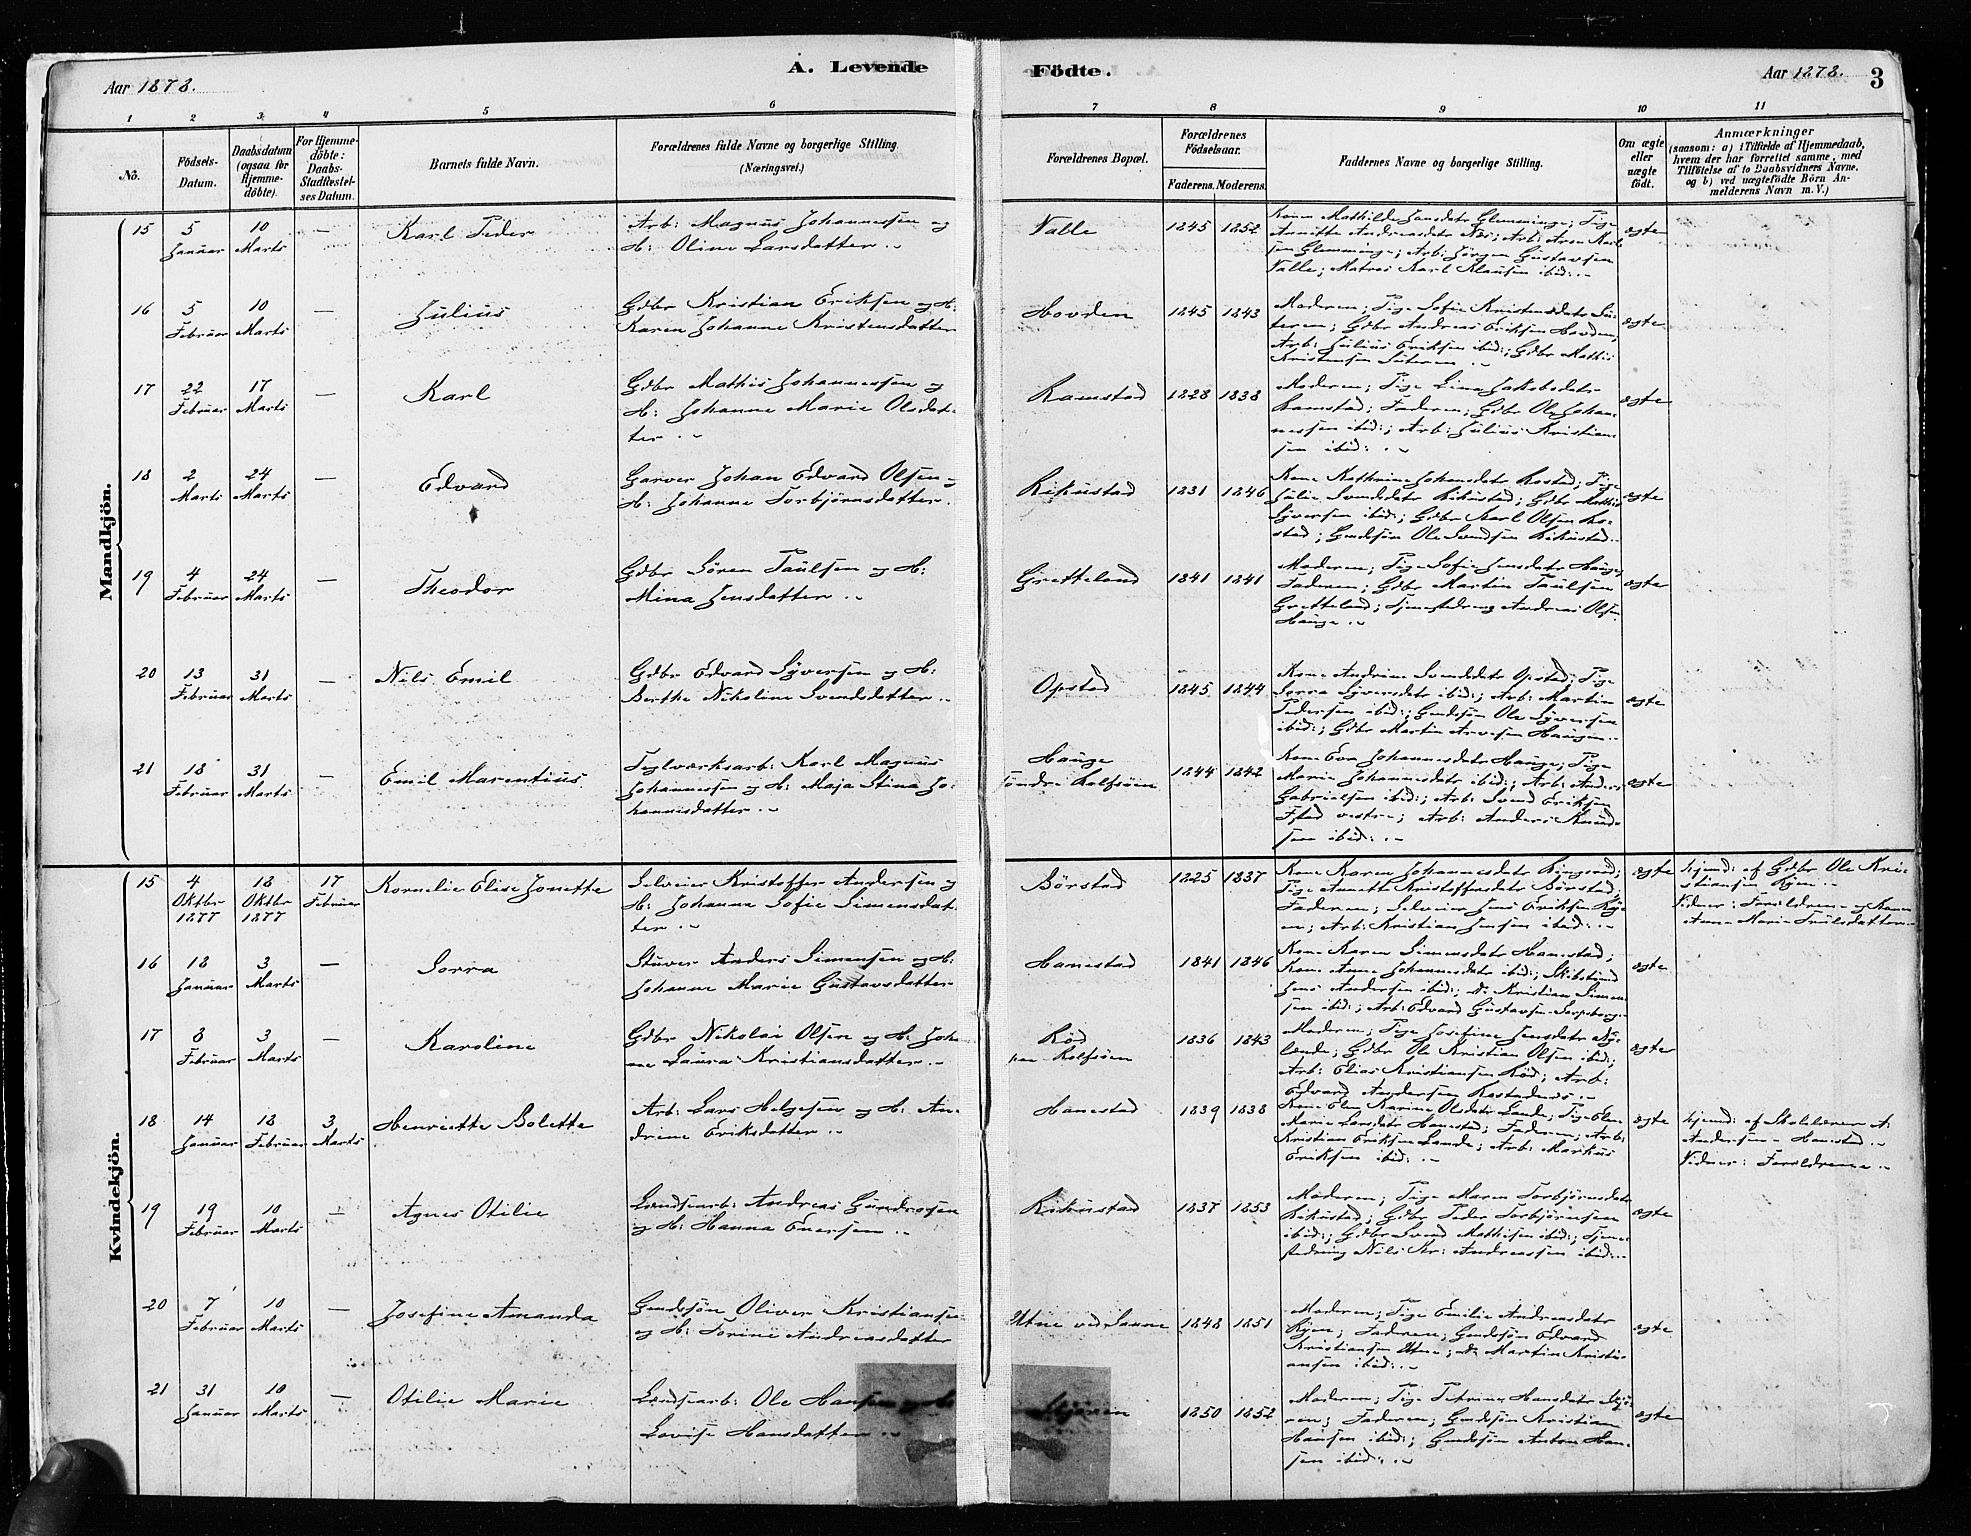 Aar 1878.
A. Levende Födte.
Aar 1878.
3
1 2 3 4 5 6 7 8 9 10 11
No.
Födsels-Datum.
Daabsdatum (ogsaa for Hjemmedöbte).
For Hjemmedöbte: Daabs-Stadfæstelses Datum.
Barnets fulde Navn.
Forældrenes fulde Navne og borgerlige Stilling. (Næringsvei.)
Forældrenes Bopæl.
Forældrenes Födselsaar.
Faderens. Moderens.
Faddernes Navne og borgerlige Stilling.
Om ægte eller uægte födt.
Anmærkninger
(saasom: a) i Tilfælde af Hjemmedaab, hvem der har forrettet samme, med Tilföielse af to Daabsvidners Navne. og b) ved uægtefödte Börn Anmelderens Navn m. V.)
Mandkjön.
15 5 Januar 10 Marts — Karl Peder
Arb: Magnus Johannessen og
H: Oline Larsdatter.
Valle 1845 1852
Kone Mathilde Jansdatr Glemminge; Pige
Annette Andreasdatr Næs; Arb: Aron Karl-
sen Glemminge; Arb: Jörgen Gustavsen
Valle; Matros Karl Klausen ibid:
ægte
16 5 Februar 10 Marts — Julius
Gdbr Kristian Eriksen og H:
Karen Johanne Kristensdatter
Hovden 1845 1843
Moderen; Pige Sofie Kristensdatr
Gdbr Andreas Eriksen Hovden;
Arb: Julius Eriksen ibid; Gdbr Mathis
Kristensen
ægte
17 22 Februar 17 Marts — Karl
Gdbr Mathis Johannessen og
H: Johanne Marie Olsdat-
ter.
Ramstad 1828 1838
Moderen; Pige Lina Jakobsdatr
Ramstad; Faderen; Gdbr Ole Johan-
nessen ibid; Arb: Julius Kristian-
sen ibid:
ægte
18 2 Marts 24 Marts — Edvard
Garver Johan Edvard Olsen og
H: Johanne Torbjörnsdatter.
Rikustad 1831 1846
Kone Kathrine Johansdatr Rostad; Pige
Julie Svendsdatr Rikustad; Gdbr Mathis
Syversen ibid; Gdbr Karl Olsen Ro-
stad; Gmdsön Ole Svendsen Rikustad.
ægte
19 4 Februar 24 Marts — Theodor
Gdbr Sören Paulsen og H:
Mina Jensdatter.
Gretteland 1841 1841
Moderen; Pige Sofie Jensdatr Hauge;
Faderen; Gdbr Martin Paulsen
Gretteland; Tjenestedreng Andreas Olsen
Hauge.
ægte
20 13 Februar 31 Marts — Nils Emil
Gdbr Edvard Syversen og H:
Berthe Nikoline Svendsdatter.
Opstad 1845 1844
Kone Andrine Svendsdatr Opstad; Pige
Sorra Syversdatr ibid; Arb: Martin
Pedersen ibid; Gmdsön Ole Syversen
ibid; Gdbr Martin Arvesen Haugen.
ægte
21 18 Februar 31 Marts — Emil Marentius
Teglværksarb: Karl Magnus
Johannessen og H: Maja Stina Jo-
hannesdatter.
Hauge
söndre Rolfsöen 1844 1842
Kone Eva Johannesdatr Hauge; Pige
Marie Johannesdatr ibid; Arb: Anders
Gabrielsen ibid; Arb: Svend Eriksen
vestre; Arb: Anders Knud-
sen ibid:
ægte
Kvindekjön.
15 4 Oktbr 1877 18 Oktbr 1877 17 Februar Kornelie Elise Jonette
Selveier Kristoffer Andersen og
H: Johanne Sofie Simensdat-
ter.
Börstad 1825 1837
Kone Karen Johannesdatr Ringerud;
Pige Annette Kristoffersdatr Börstad;
Faderen; Selveier Jens Eriksen Kjö-
en; Arb: Kristian Jensen ibid:
ægte
hjemd: af Gdbr Ole Kri-
stiansen Kjen.
Vidner: Forældrene og Kone
Anne Marie Trulsdatter.
16 18 Januar 3 Marts — Sorra
Stuver Anders Simensen og H:
Johanne Marie Gustavsdatter
Hanestad 1841 1846
Kone Karen Simensdatr Hanestad;
Kone Anne Johannesdatr ibid; Skibstömd
Jens Andersen ibid; do Kristian Simen-
sen ibid; Arb: Edvard Gustavsen Sarpsborg.
ægte
17 8 Februar 3 Marts — Karoline
Gdbr Nikolai Olsen og H: Johan-
ne Laura Kristiansdatter.
Röd
Rolfsöen 1836 1843
Moderen; Pige Josefine Jensdatr Ny-
lænde; Gdbr Ole Kristian Olsen ibid;
Arb: Elias Kristiansen Röd; Arb:
Edvard Andersen
ægte
18 14 Januar 18 Februar 3 Marts Henriette Bolette
Arb: Lars Helgesen og H: An-
drine Eriksdatter.
Hanestad 1839 1838
Kone Elen Karine Olsdatr Lande; Pige Elen
Marie Larsdatr Hanestad; Faderen; Arb:
Kristian Eriksen Lande; Arb: Markus
Eriksen ibid:
ægte
hjemd: af Skolelærer A:
Andersen Hanestad.
Vidner: Forældrene.
19 19 Februar 10 Marts — Agnes Otilie
Landsearb: Andreas Gundersen
og H: Hanna Enersen.
Rikustad 1837 1853
Moderen; Pige Maren Torbjörnsdatr
Rikustad; Gdbr Peder Torbjörnsen
ibid; Gdbr Svend Mathisen ibid; Tjene-
stedreng Nils Kr: Andreassen ibid:
ægte
20 7 Februar 10 Marts — Josefine Amanda
Gmdsön Oliver Kristiansen
og H: Torine Andreasdatter
Utne ved Sanne 1848 1851
Moderen; Pige Emilie Andreasdatr
Kjen; Faderen; Gmdsön Edvard
Kristiansen Utne; do Martin Kristi-
ansen ibid:
ægte
21 31 Januar 10 Marts — Otilie Marie
Landsearb: Ole Hansen og H:
Lovise Hansdatter.
Skjören 1850 1852
Moderen; Pige Petrine Hansdatr Skjö-
ren; Faderen; Gmdsön Kristian
Hansen ibid; Gmdsön Anton Han-
sen ibid:
ægte